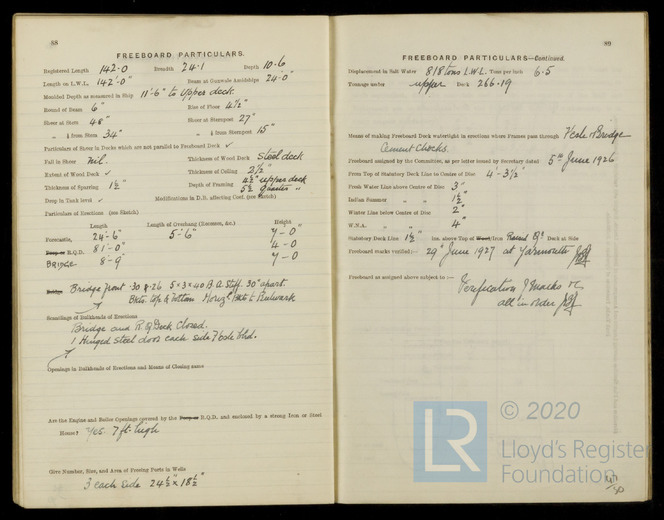 88
FREEBOARD PARTICULARS.
Registered Length 142·0 Breadth 24·1 Depth 10·6
Length on L.W.L. 142'·0" Beam at Gunwale Amidships 24'·0"
Moulded Depth as measured in Ship 11'·6" to Upper deck.
Round of Beam 6" Rise of Floor 4½"
Sheer at Stem 48" Sheer at Sternpost 27"
" ⅛ from Stem 34" " ⅛ from Sternpost 15"
Particulars of Sheer in Decks which are not parallel to Freeboard Deck ✓
Fall in Sheer nil. Thickness of Wood Deck Steel deck
Extent of Wood Deck ✓ Thickness of Ceiling 2½"
Thickness of Sparring 1½" Depth of Framing 4½" upper deck
5½ quarter "
Drop in Tank level ✓ Modifications in D.B. affecting Coef. (see Sketch)
Particulars of Erections (see Sketch)
Length Length of Overhang (Stanchions, &c.) Height
Forecastle, 24'-6" 5'-6" 7-0"
R.Q.D. 81'-0" 4-0
BRIDGE 8'-9" 7-0
Bridge Bridge front ·30 & ·26 5×3×40 B.A. Stiff. 30" apart.
Bkts top & bottom Horizl to Bulwark
Scantlings of Bulkheads of Erections
Bridge and R.Q. Deck Closed.
1 Hinged steel door each side F'csle bhd.
Openings in Bulkheads of Erections and Means of Closing same
Are the Engine and Boiler Openings covered by the R.Q.D., and enclosed by a strong Iron or Steel
House? Yes. 7 ft. high
Give Number, Size, and Area of Freeing Ports in Wells
3 each side 24½" × 18½"
89
FREEBOARD PARTICULARS—Continued.
Displacement in Salt Water 818 tons L.W.L. Tons per inch 6·5
Tonnage under upper Deck 266·19
Means of making Freeboard Deck watertight in erections where Frames pass through F'csle & Bridge
Cement Chocks.
Freeboard assigned by the Committee, as per letter issued by Secretary dated 5th June 1926
From Top of Statutory Deck Line to Centre of Disc 4'-3½"
Fresh Water Line above Centre of Disc 3"
Indian Summer " " 1½"
Winter Line below Centre of Disc 2"
W.N.A. " " 4"
Statutory Deck Line 1½" ins. above Top of Wood/Iron Round Qr Deck at Side
Freeboard marks verified:— 29th June 1927 at Yarmouth
Freeboard as assigned above subject to:—
Verification of marks &c
all in order
LR
© 2020
Lloyd's Register
Foundation